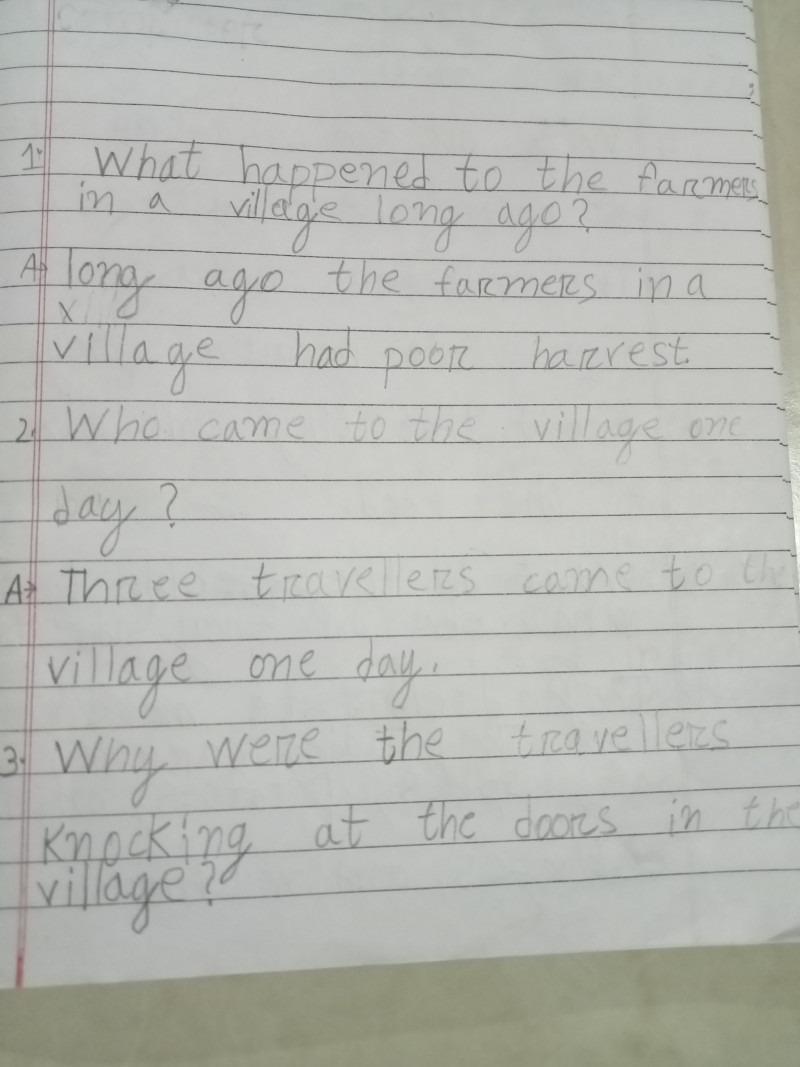 1. What happened to the farmers
in a village long ago?
A) long ago the farmers in a
x
village had poor harvest.
2. Who came to the village one
day?
A) Three travellers came to the
village one day.
3. Why were the travellers
Knocking at the doors in the
village?